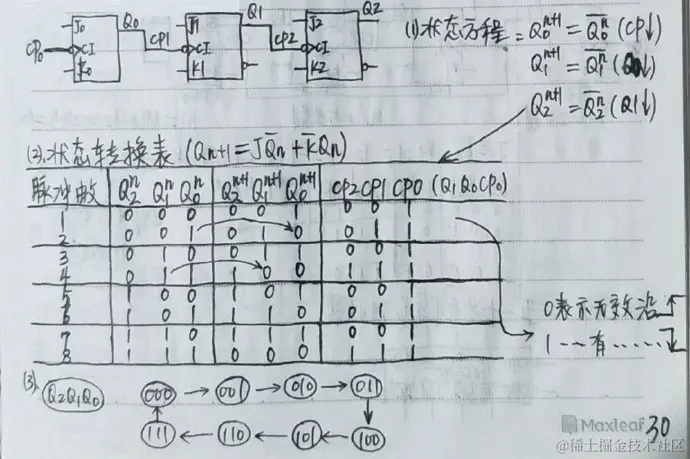 J0 Q0 J1 Q1 J2 Q2
CP0 CI CP1 CI CP2 CI
K0 K1 K2
(1)状态方程: Q0^{n+1} = \overline{Q0^n} (CP↓)
Q1^{n+1} = \overline{Q1^n} (Q0↓)
Q2^{n+1} = \overline{Q2^n} (Q1↓)
(2).状态转换表 (Qn+1 = J\overline{Q}n + \overline{K}Qn)
脉冲数 Q2^n Q1^n Q0^n Q2^{n+1} Q1^{n+1} Q0^{n+1} CP2 CP1 CP0 (Q1 Q0 CP0)
1 0 0 0 0 0 1 0 0 1
2 0 0 1 0 1 0 0 1 1
3 0 1 0 0 1 1 0 0 1
4 0 1 1 1 0 0 1 1 1
5 1 0 0 1 0 1 0 0 1
6 1 0 1 1 1 0 0 1 1
7 1 1 0 1 1 1 0 0 1
8 1 1 1 0 0 0 1 1 1
0表示无效沿↑
1 -- 有 ...... ↓
(3). Q2Q1Q0 000 → 001 → 010 → 011
111 ← 110 ← 101 ← 100
Maxleaf 30
@稀土掘金技术社区